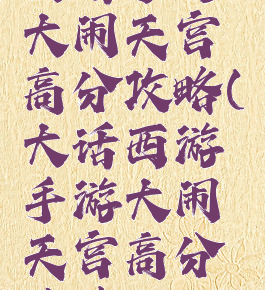 大闹天宫
高分攻略(
大话西游
手游大闹
天宫高分